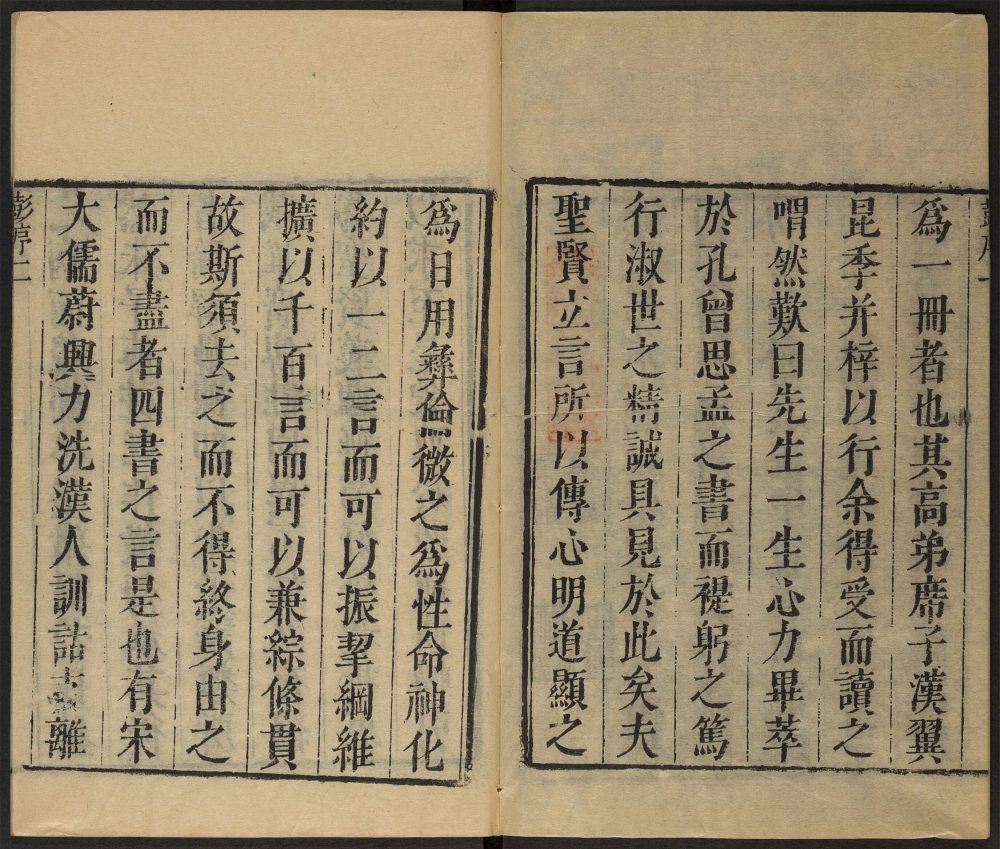 彭序一
爲一冊者也其高弟席子漢翼
昆季并梓以行余得受而讀之
喟然歎曰先生一生心力畢萃
於孔曾思孟之書而禔躬之篤
行淑世之精誠具見於此矣夫
聖賢立言所以傳心明道顯之
爲日用彝倫微之爲性命神化
約以一二言而可以振挈綱維
擴以千百言而可以兼綜條貫
故斯須去之而不得終身由之
而不盡者四書之言是也有宋
大儒蔚興力洗漢人訓詁離
彭序二